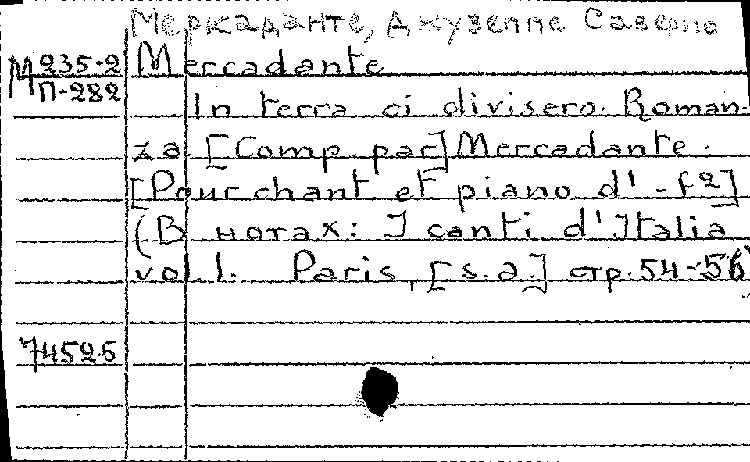 Меркаданте, Джузеппе Саверио
М 235-2
П-282
Mercadante
In terra ci divisero. Roman-
za [Comp. par] Mercadante.
[Pour chant et piano d'-f²]
(В нотах: I canti d'Italia
vol. 1. Paris, [s.a.] стр. 54-56
74526